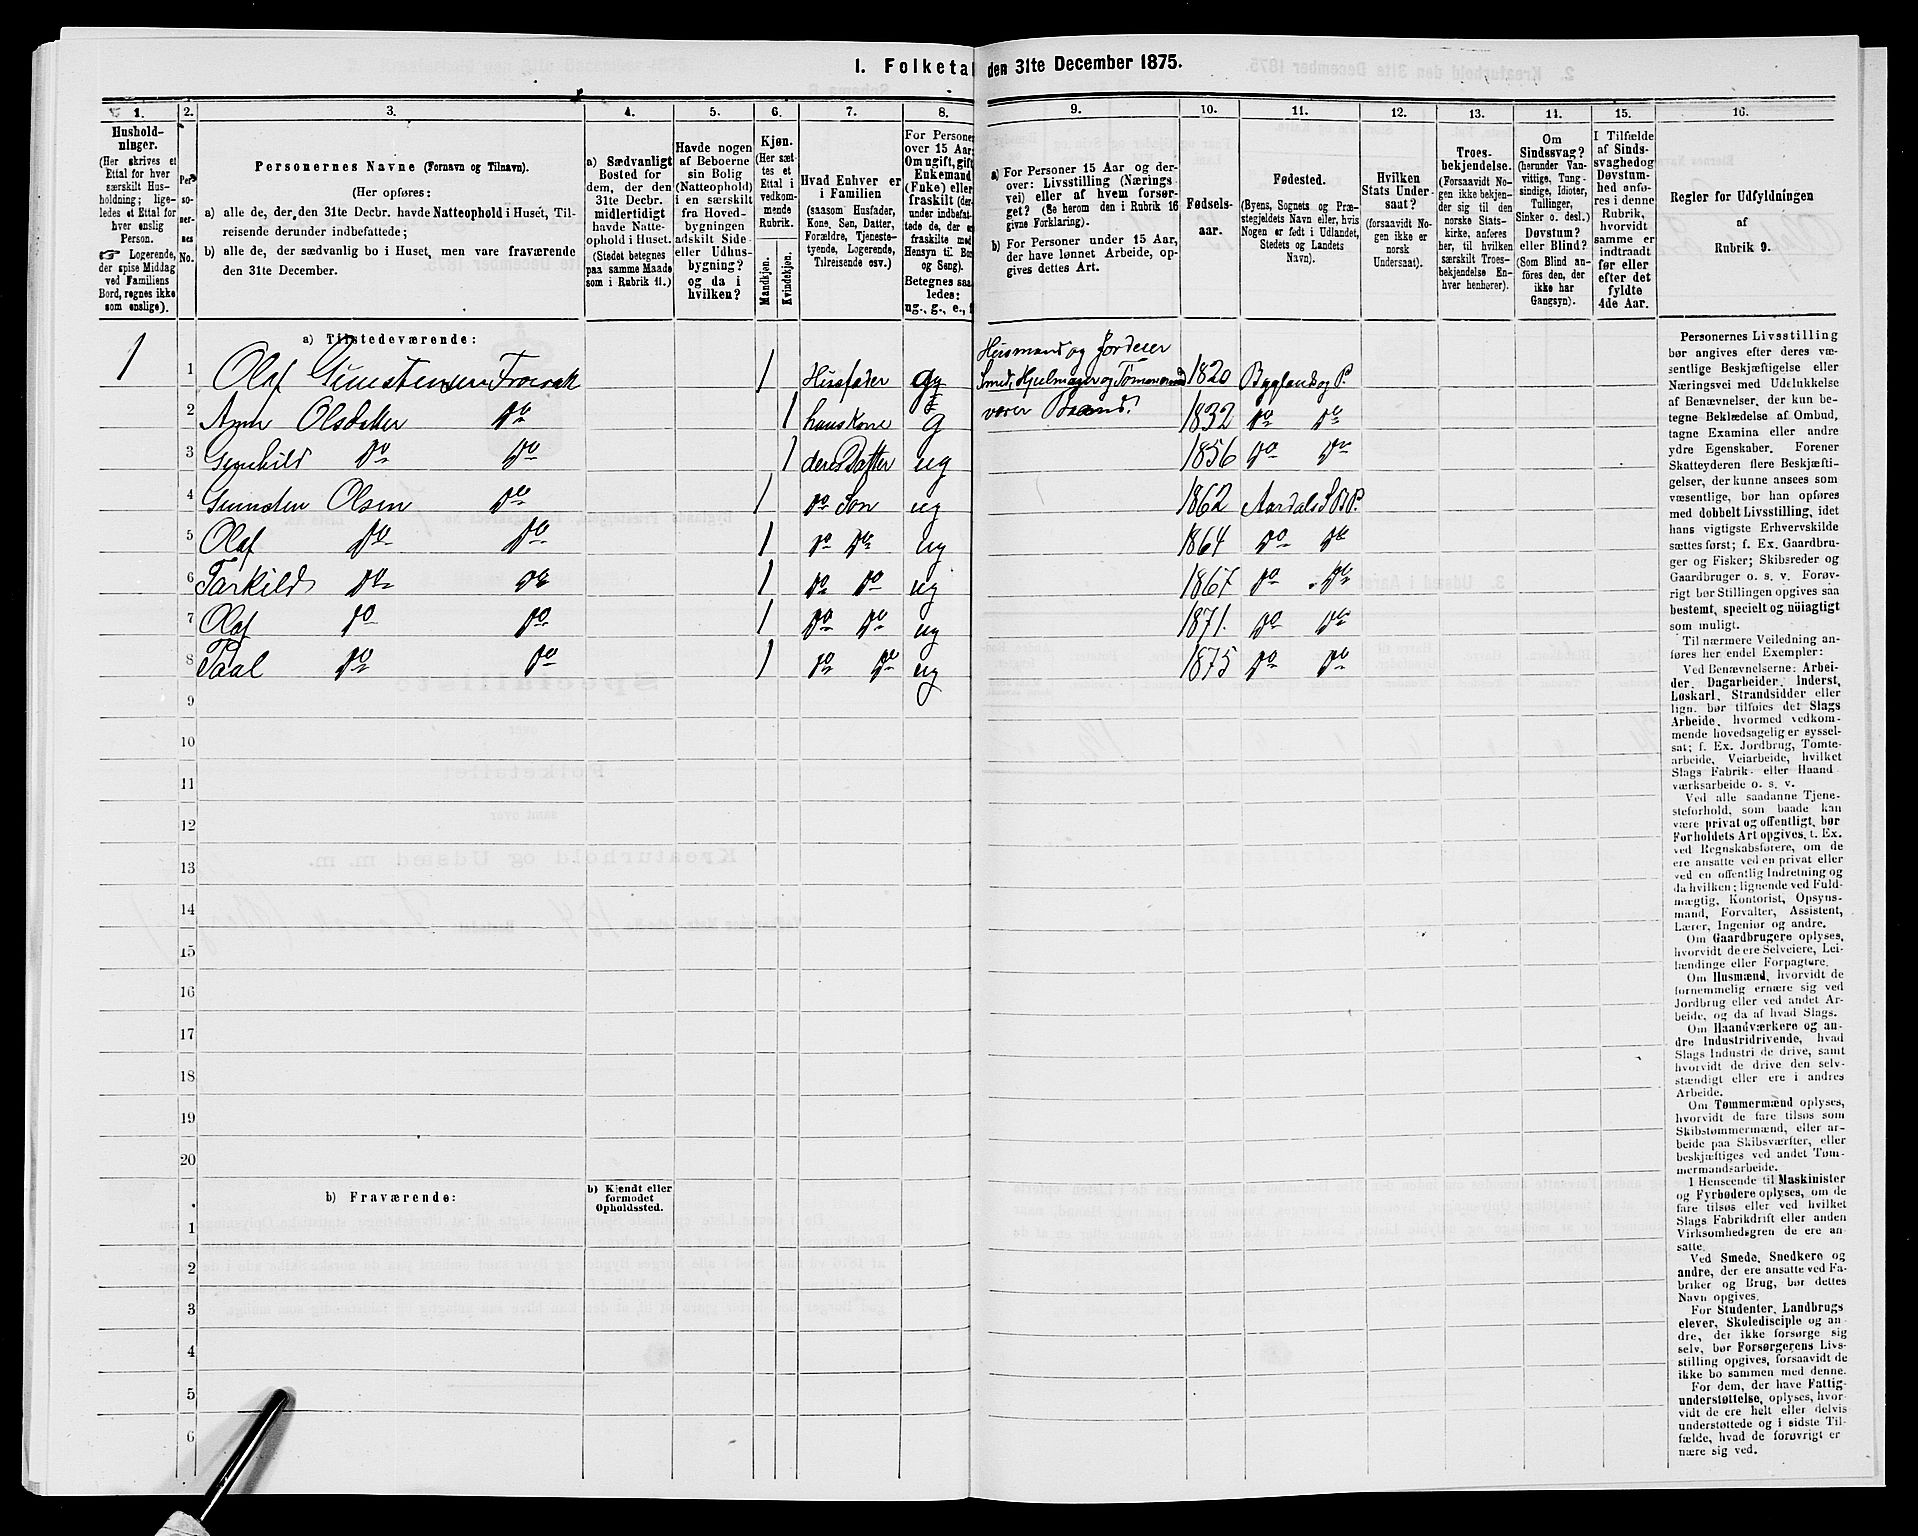 I. Folketal den 31te December 1875.
1. 2. 3. 4. 5. 6. 7. 8. 9. 10. 11. 12. 13. 14. 15. 16.
Hushold-
ninger.
(Her skrives et
Ettal for hver
særskilt Hus-
holdning; lige-
ledes et Ettal for
hver enslig
Person.
☞ Logerende,
der spise Middag
ved Familiens
Bord, regnes ikke
som enslige).
Per-
soner-
nes
No.
Personernes Navne (Fornavn og Tilnavn).
(Her opføres:
a) alle de, der den 31te Decbr. havde Natteophold i Huset, Til-
reisende derunder indbefattede;
b) alle de, der sædvanlig bo i Huset, men vare fraværende
den 31te December.
a) Sædvanligt
Bosted for
dem, der den
31te Decbr.
midlertidigt
havde Natte-
ophold i Huset.
(Stedet betegnes
paa samme Maade
som i Rubrik 11.)
Havde nogen
af Beboerne
sin Bolig
(Natteophold)
i en særskilt
fra Hoved-
bygningen
adskilt Side-
eller Udhus-
bygning?
og da i
hvilken?
Kjøn.
(Her sæt-
tes et
Ettal i
vedkom-
mende
Rubrik.
Mandkjøn.
Kvindekjøn.
Hvad Enhver er
i Familien
(saasom Husfader,
Kone, Søn, Datter,
Forældre, Tjeneste-
tyende, Logerende,
Tilreisende osv.)
For Personer
over 15 Aar:
Om ugift, gift
Enkemand
(Enke) eller
fraskilt (der-
under indbefat-
tede de, der ere
fraskilte med
Hensyn til Bord
og Seng).
Betegnes saa-
ledes:
ug., g., e., f.
a) For Personer 15 Aar og der-
over: Livsstilling (Nærings-
vei) eller af hvem forsør-
get? (Se herom den i Rubrik 16
givne Forklaring).
b) For Personer under 15 Aar,
der have lønnet Arbeide, op-
gives dettes Art.
Fødsels-
aar.
Fødested.
(Byens, Sognets og Præ-
stegjeldets Navn eller, hvis
Nogen er født i Udlandet,
Stedets og Landets
Navn).
Hvilken
Stats Under-
saat?
(forsaavidt No-
gen ikke er
norsk
Undersaat).
Troes-
bekjendelse.
(Forsaavidt No-
gen ikke bekjen-
der sig til den
norske Stats-
kirke, anføres
her, til hvilken
særskilt Troes-
bekjendelse En-
hver henhører).
Om
Sindssvag?
(herunder Van-
vittige, Tung-
sindige, Idioter,
Tullinger,
Sinker o. desl.)
Døvstum?
eller Blind?
(Som Blind an-
føres den, der
ikke har
Gangsyn).
I Tilfælde
af Sinds-
svaghed og
Døvstum-
hed anfø-
res i denne
Rubrik,
hvorvidt
samme er
indtraadt
før eller
efter det
fyldte
4de Aar.
Regler for Udfyldningen
af
Rubrik 9.
a) Tilstedeværende:
Husmand og Jordeier
1 1 Olaf Gunstensen Froirak 1 Husfader g Smed, Hjulmager og Tømmermand 1820 Bygland og P.
2 Anne Olsdatter Do 1 hans Kone g 1832 Do Do
3 Gunhild Do Do 1 deres Datter ug 1856 Do Do
4 Gunsten Olsen Do 1 Do Søn ug 1862 Aardals S B P.
5 Olaf Do Do 1 Do Do ug 1864 Do Do
6 Tarkild Do Do 1 Do Do ug 1867 Do Do
7 Olaf Do Do 1 Do Do ug 1871. Do Do
8 Paal Do Do 1 Do Do ug 1875 Do Do
9
10
11
12
13
14
15
16
17
18
19
20
b) Fraværende:
b) Kjendt eller
formodet
Opholdssted.
1
2
3
4
5
6
Personernes Livsstilling
bør angives efter deres væ-
sentlige Beskjæftigelse eller
Næringsvei med Udelukkelse
af Benævnelser, der kun be-
tegne Beklædelse af Ombud,
tagne Examina eller andre
ydre Egenskaber. Forener
Skatteyderen flere Beskjæfti-
gelser, der kunne ansees som
væsentlige, bør han opføres
med dobbelt Livsstilling, idet
hans vigtigste Erhvervskilde
sættes først; f. Ex. Gaardbru-
ger og Fisker; Skibsreder og
Gaardbruger o. s. v. Forøv-
rigt bør Stillingen opgives saa
bestemt, specielt og nøiagtigt
som muligt.
Til nærmere Veiledning an-
føres her endel Exempler:
Ved Benævnelserne: Arbei-
der, Dagarbeider, Inderst,
Løskarl, Strandsidder eller
lign. bør tilføies det Slags
Arbeide, hvormed vedkom-
mende hovedsagelig er syssel-
sat; f. Ex. Jordbrug, Tomte-
arbeide, Veiarbeide, hvilket
Slags Fabrik- eller Haand-
værksarbeide o. s. v.
Ved alle saadanne Tjene-
steforhold, som baade kan
være privat og offentligt, bør
Forholdets Art opgives, t. Ex.
ved Regnskabsførere, om de
ere ansatte ved en privat eller
ved en offentlig Indretning og
da hvilken; lignende ved Fuld-
mægtig, Kontorist, Opsyns-
mand, Forvalter, Assistent,
Lærer, Ingeniør og andre.
Om Gaardbrugere oplyses,
hvorvidt de ere Selveiere, Lei-
lændinge eller Forpagtere.
Om Husmænd, hvorvidt de
fornemmelig ernære sig ved
Jordbrug eller ved andet Ar-
beide, og da af hvad Slags.
Om Haandværkere og an-
dre Industridrivende, hvad
Slags Industri de drive, samt
hvorvidt de drive den selv-
stændigt eller ere i andres
Arbeide.
Om Tømmermænd oplyses,
hvorvidt de fare tilsøs som
Skibstømmermænd, eller ar-
beide paa Skibsværfter, eller
beskjæftiges ved andet Tøm-
mermandsarbeide.
I Henseende til Maskinister
og Fyrbødere oplyses, om de
fare tilsøs eller ved hvilket
Slags Fabrikdrift eller anden
Virksomhedsgren de ere an-
satte.
Ved Smede, Snedkere og
andre, der ere ansatte ved Fa-
briker og Brug, bør dettes
Navn opgives.
For Studenter, Landbrugs-
elever, Skoledisciple og an-
dre, der ikke forsørge sig
selv, bør Forsørgerens Livs-
stilling opgives, forsaavidt de
ikke bo sammen med denne.
For dem, der have Fattig-
understøttelse, oplyses, hvor-
vidt de ere helt eller delvis
understøttede og i sidste Til-
fælde, hvad de forøvrigt er-
nære sig ved.